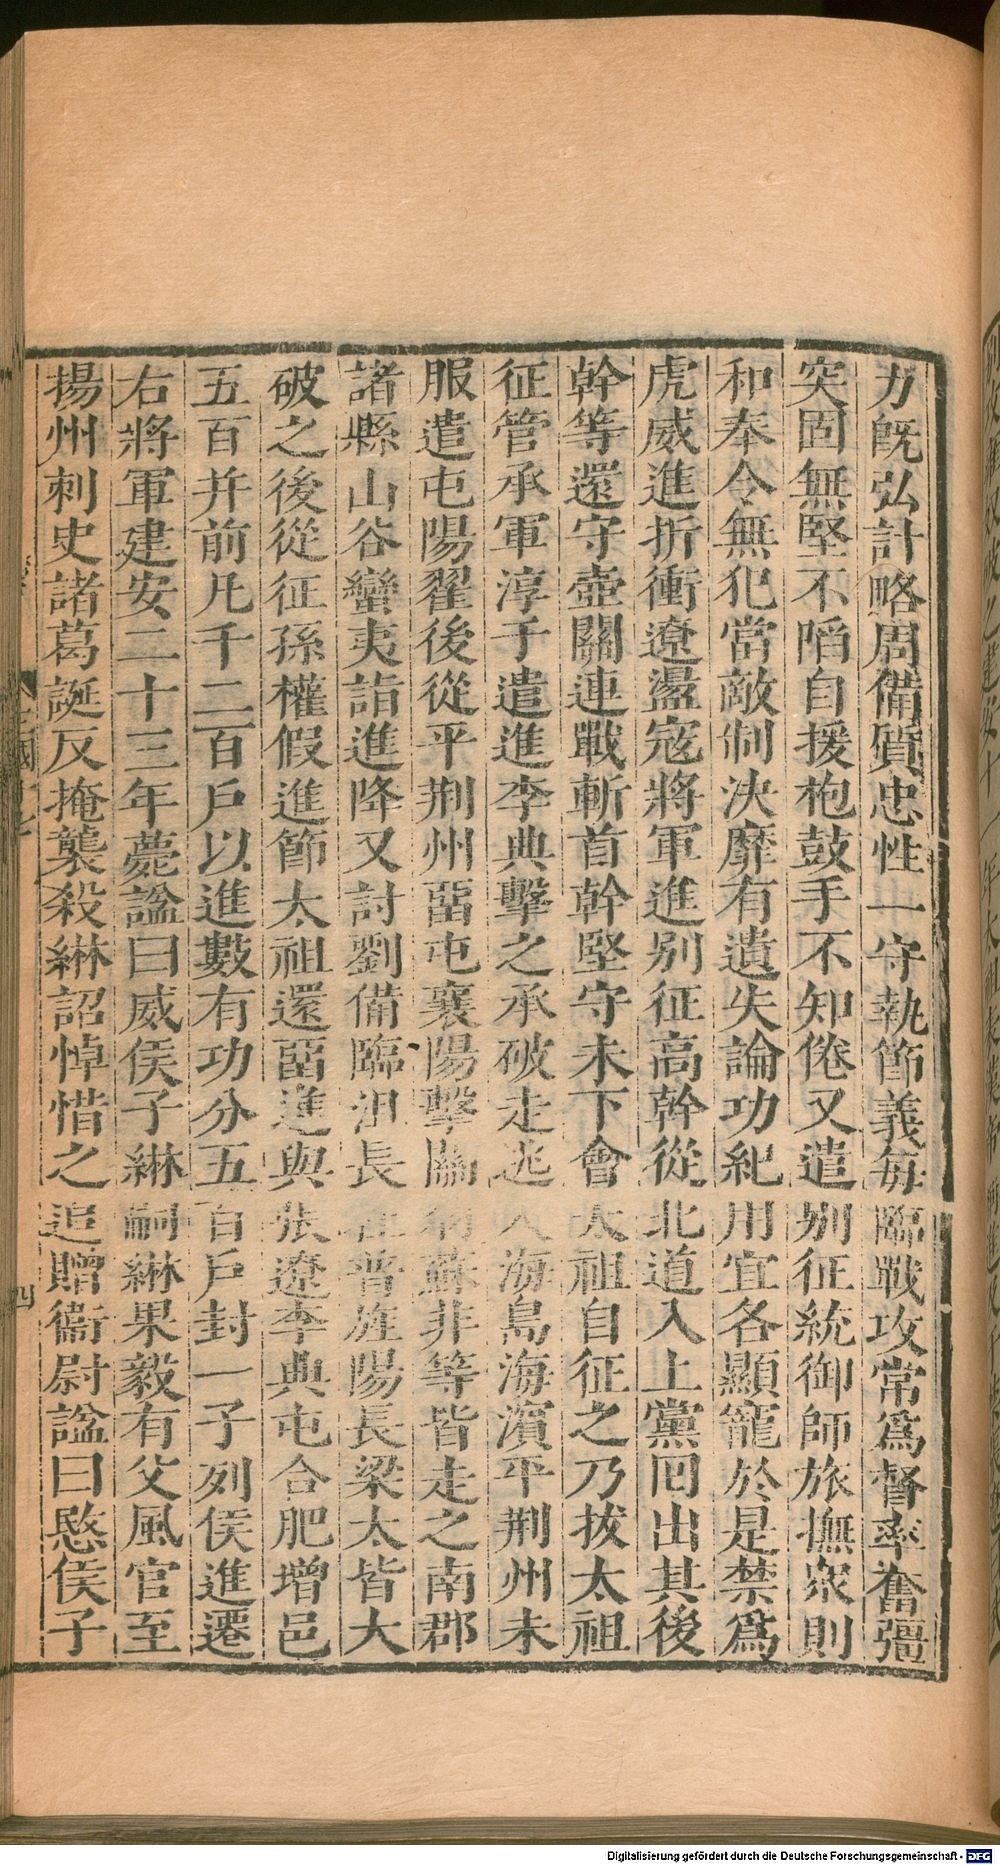 力既弘計略周備質忠性一守執節義每臨戰攻常爲督率奮彊
突固無堅不䧟自援枹鼓手不知倦又遣别征統御師旅撫衆則
和奉令無犯當敵制決靡有遺失論功紀用宜各顯寵於是禁爲
虎威進折衝遼盪寇將軍進别征高幹從北道入上黨囘出其後
幹等還守壺關連戰斬首幹堅守未下會太祖自征之乃拔太祖
征管承軍淳于遣進李典擊之承破走逃入海島海濱平荆州未
服遣屯陽翟後從平荆州畱屯襄陽擊關羽蘇非等皆走之南郡
諸縣山谷蠻夷詣進降又討劉備臨沮長杜普旌陽長梁太皆大
破之後從征孫權假進節太祖還畱進與張遼李典屯合肥增邑
五百幷前凡千二百戶以進數有功分五百戶封一子列侯進遷
右將軍建安二十三年薨諡曰威侯子綝嗣綝果毅有父風官至
揚州刺史諸葛誕反掩襲殺綝詔悼惜之追贈衞尉諡曰愍侯子
四
Digitalisierung gefördert durch die Deutsche Forschungsgemeinschaft - DFG